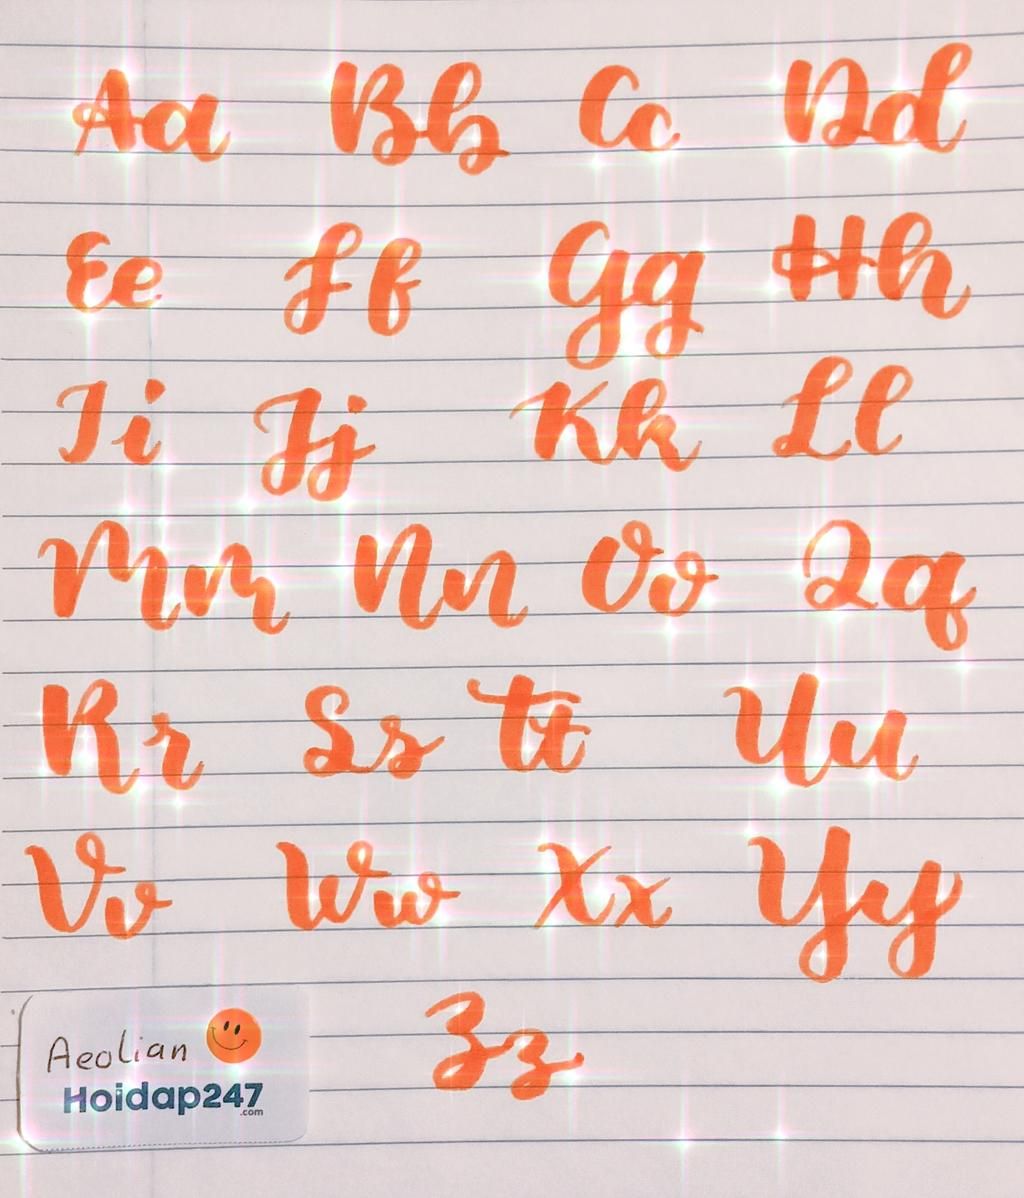 Aa Bb Cc Dd
Ee Ff Gg Hh
Ii Jj Kk Ll
Mm Nn Oo Qq
Rr Ss tt Uu
Vv Ww Xx Yy
Zz
Aeolian
Hoidap247
.com